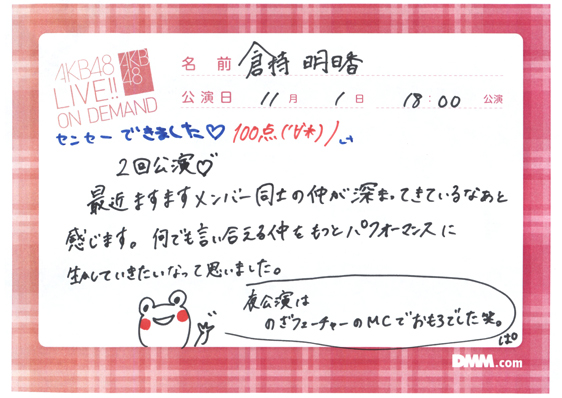 AKB48
LIVE!!
ON DEMAND
AKB
48
名前 倉持 明日香
公演日 11月 1日 18:00 公演
センセーできました♡ 100点(*'∀'*)ノ
2回公演♡
最近ますますメンバー同士の仲が深まってきているなあと
感じます。何でも言い合える仲をもっとパフォーマンスに
生かしていきたいなって思いました。
夜公演は
のざフューチャーのMCでおもろでした笑。
DMM.com